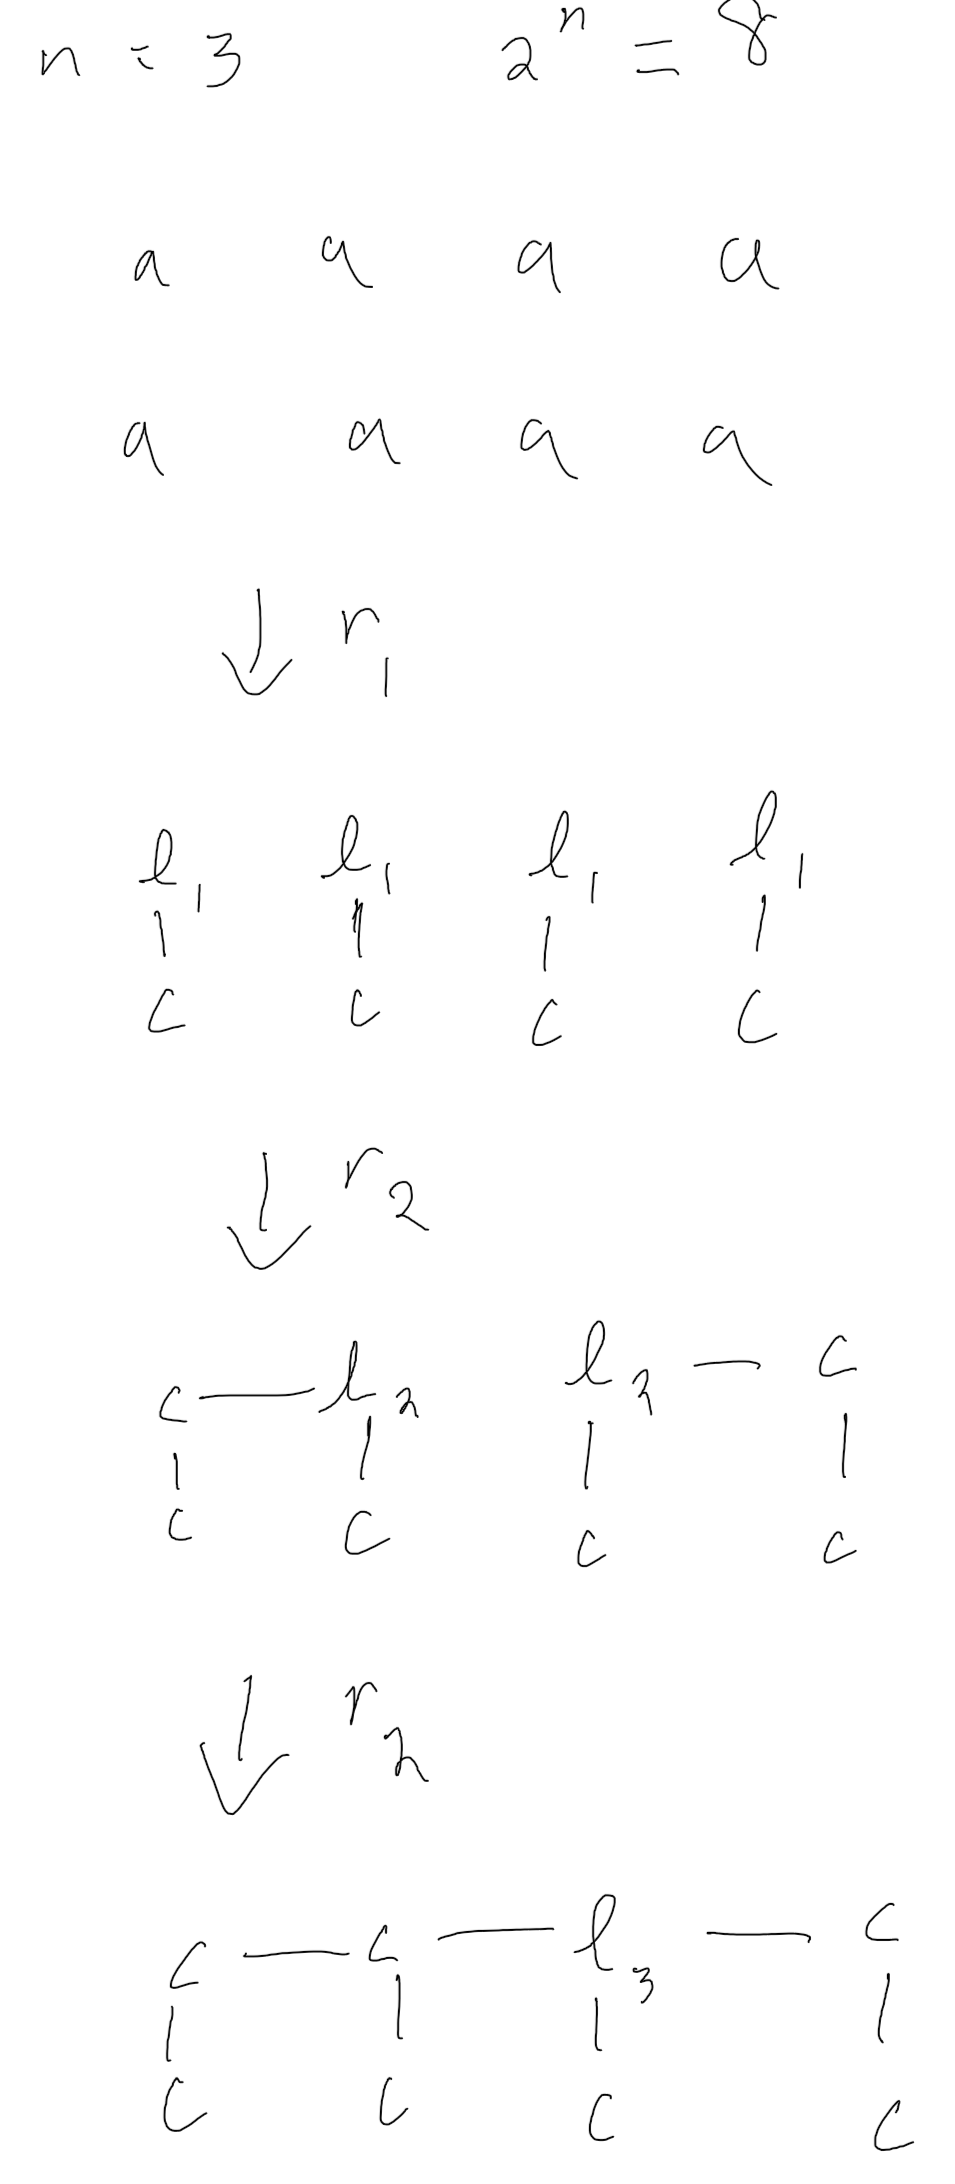 n = 3 2^n = 8
a a a a
a a a a
↓ r_1
l_1 l_1 l_1 l_1
| | | |
c c c c
↓ r_2
c — l_2 l_2 — c
| | | |
c c c c
↓ r_2
c — c — l_3 — c
| | | |
c c c c